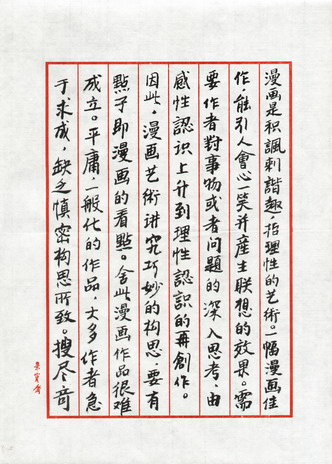 漫画是积諷刺諧趣，指理性的艺术。一幅漫画佳
作，能引人會心一笑并産生联想的效果。需
要作者對事物或者问题的深入思考，由
感性認识上升到理性認识的再創作。
因此，漫画艺術讲究巧妙的构思，要有
點子即漫画的看點。舍此漫画作品很难
成立。平庸，一般化的作品，大多作者急
于求成，缺乏慎密构思所致。搜尽奇